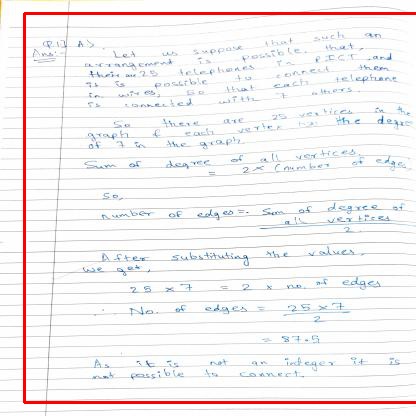 Q1) A>
Ans:- Let us suppose that such an
arrangement is possible, that,
there are 25 telephones in PICT, and
it is possible to connect them
in wires, so that each telephone
is connected with 7 others.
So there are 25 vertices in the
graph & each vertex has the degree
of 7 in the graph.
Sum of degree of all vertices.
= 2 x (number of edge
So,
number of edges = Sum of degree of
all vertices
2
After substituting the values,
we get,
25 x 7 = 2 x no. of edges
∴ No. of edges = 25 x 7
2
= 87.5
As it is not an integer it is
not possible to connect.